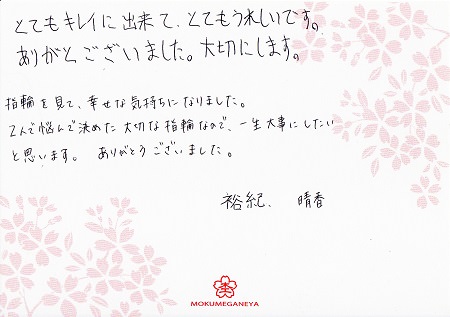 とてもキレイに出来て、とてもうれしいです。
ありがとございました。大切にします。
指輪を見て、幸せな気持ちになりました。
2人で悩んで決めた大切な指輪なので、一生大事にしたい
と思います。 ありがとうございました。
裕紀、 晴香
MOKUMEGANEYA